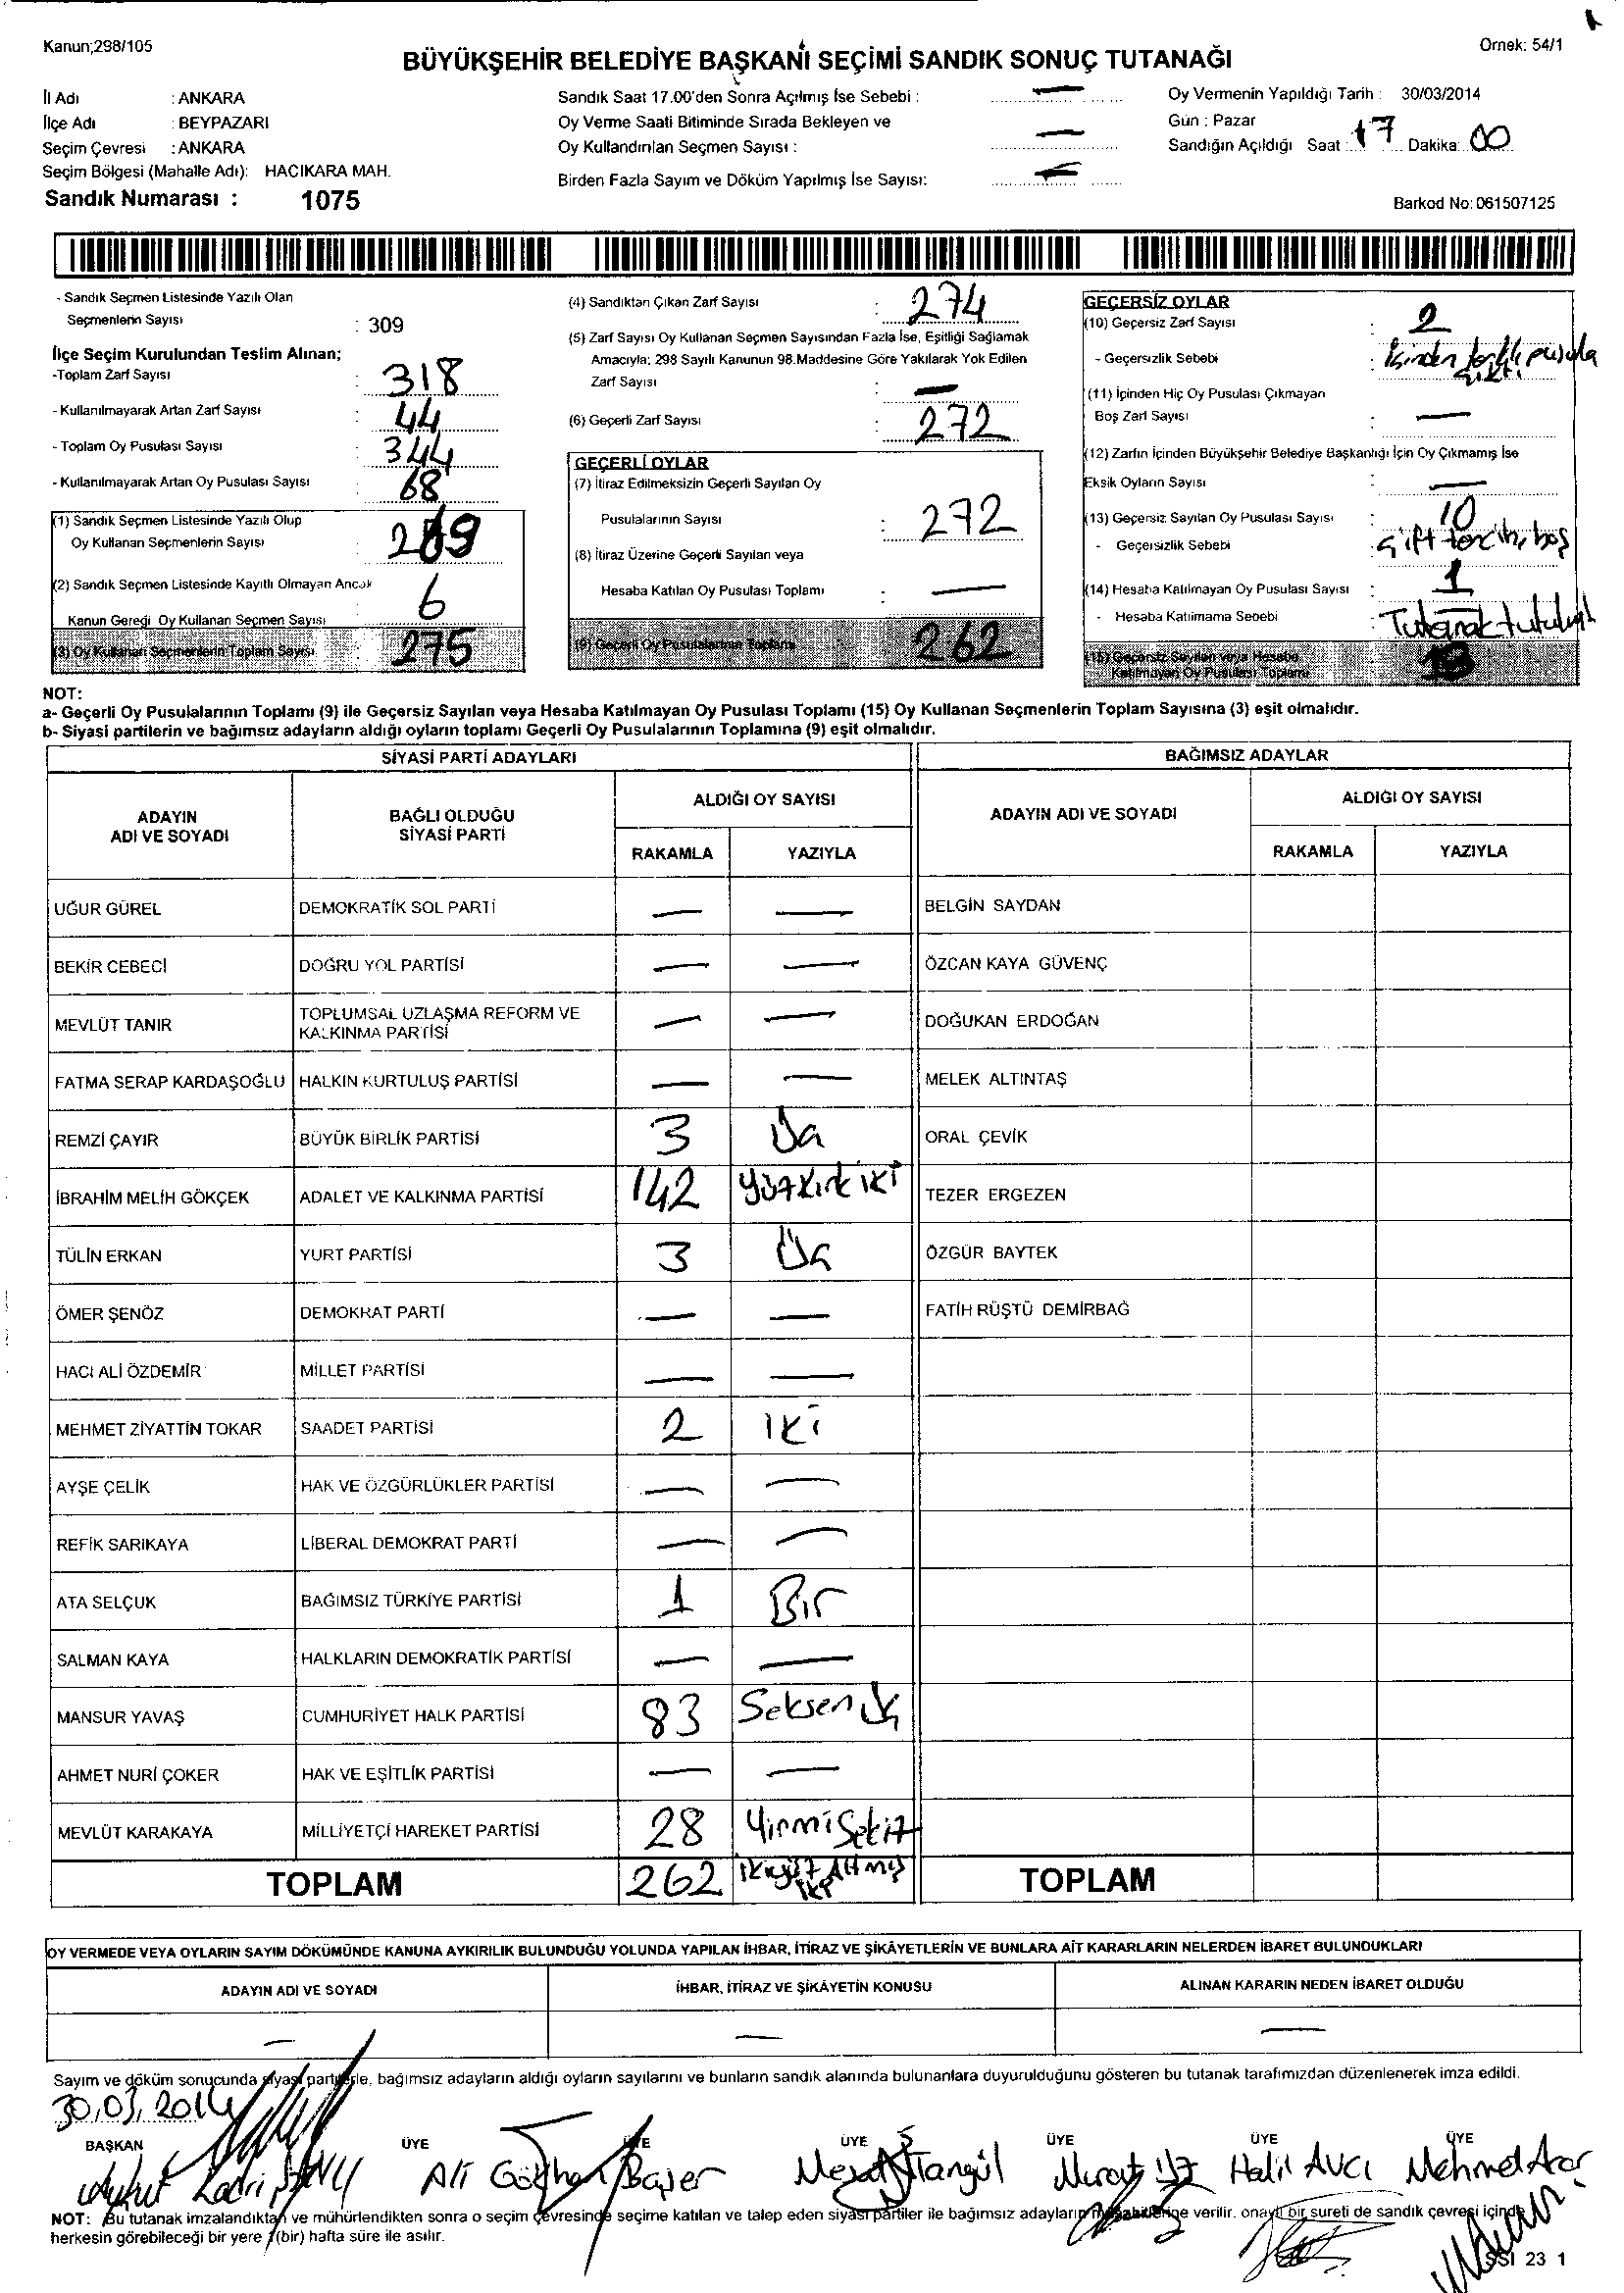 Kanun;298/105
Örnek: 54/1
BÜYÜKŞEHİR BELEDİYE BAŞKANI SEÇİMİ SANDIK SONUÇ TUTANAĞI
İl Adı : ANKARA
İlçe Adı : BEYPAZARI
Seçim Çevresi : ANKARA
Seçim Bölgesi (Mahalle Adı): HACIKARA MAH.
Sandık Numarası : 1075
Sandık Saat 17.00'den Sonra Açılmış İse Sebebi : —
Oy Verme Saati Bitiminde Sırada Bekleyen ve
Oy Kullandırılan Seçmen Sayısı : —
Birden Fazla Sayım ve Döküm Yapılmış İse Sayısı: —
Oy Vermenin Yapıldığı Tarih : 30/03/2014
Gün : Pazar
Sandığın Açıldığı Saat : 17 Dakika: 00
Barkod No: 061507125
- Sandık Seçmen Listesinde Yazılı Olan
Seçmenlerin Sayısı : 309
İlçe Seçim Kurulundan Teslim Alınan;
-Toplam Zarf Sayısı : 318
- Kullanılmayarak Artan Zarf Sayısı : 44
- Toplam Oy Pusulası Sayısı : 344
- Kullanılmayarak Artan Oy Pusulası Sayısı : 68
(1) Sandık Seçmen Listesinde Yazılı Olup
Oy Kullanan Seçmenlerin Sayısı : 269
(2) Sandık Seçmen Listesinde Kayıtlı Olmayan Ancak
Kanun Gereği Oy Kullanan Seçmen Sayısı 6
(3) Oy Kullanan Seçmenlerin Toplam Sayısı 275
(4) Sandıktan Çıkan Zarf Sayısı : 274
(5) Zarf Sayısı Oy Kullanan Seçmen Sayısından Fazla İse, Eşitliği Sağlamak
Amacıyla: 298 Sayılı Kanunun 98.Maddesine Göre Yakılarak Yok Edilen
Zarf Sayısı : —
(6) Geçerli Zarf Sayısı : 272
GEÇERLİ OYLAR
(7) İtiraz Edilmeksizin Geçerli Sayılan Oy
Pusulalarının Sayısı : 272
(8) İtiraz Üzerine Geçerli Sayılan veya
Hesaba Katılan Oy Pusulası Toplamı : —
(9) Geçerli Oy Pusulalarının Toplamı 262
GEÇERSİZ OYLAR
(10) Geçersiz Zarf Sayısı : 2
- Geçersizlik Sebebi : içinden farklı pusula
çıktı
(11) İçinden Hiç Oy Pusulası Çıkmayan
Boş Zarf Sayısı : —
(12) Zarfın İçinden Büyükşehir Belediye Başkanlığı İçin Oy Çıkmamış İse
Eksik Oyların Sayısı : —
(13) Geçersiz Sayılan Oy Pusulası Sayısı : 10
- Geçersizlik Sebebi : Çift tercih, boş
(14) Hesaba Katılmayan Oy Pusulası Sayısı : 1
- Hesaba Katılmama Sebebi : Tutanak
(15) Geçersiz Sayılan veya Hesaba
Katılmayan Oy Pusulası Toplamı 13
NOT:
a- Geçerli Oy Pusulalarının Toplamı (9) ile Geçersiz Sayılan veya Hesaba Katılmayan Oy Pusulası Toplamı (15) Oy Kullanan Seçmenlerin Toplam Sayısına (3) eşit olmalıdır.
b- Siyasi partilerin ve bağımsız adayların aldığı oyların toplamı Geçerli Oy Pusulalarının Toplamına (9) eşit olmalıdır.
SİYASİ PARTİ ADAYLARI
BAĞIMSIZ ADAYLAR
ADAYIN
ADI VE SOYADI
BAĞLI OLDUĞU
SİYASİ PARTİ
ALDIĞI OY SAYISI
RAKAMLA YAZIYLA
ADAYIN ADI VE SOYADI
ALDIĞI OY SAYISI
RAKAMLA YAZIYLA
UĞUR GÜREL DEMOKRATİK SOL PARTİ — — BELGİN SAYDAN
BEKİR CEBECİ DOĞRU YOL PARTİSİ — — ÖZCAN KAYA GÜVENÇ
MEVLÜT TANIR TOPLUMSAL UZLAŞMA REFORM VE
KALKINMA PARTİSİ — — DOĞUKAN ERDOĞAN
FATMA SERAP KARDAŞOĞLU HALKIN KURTULUŞ PARTİSİ — — MELEK ALTINTAŞ
REMZİ ÇAYIR BÜYÜK BİRLİK PARTİSİ 3 Üç ORAL ÇEVİK
İBRAHİM MELİH GÖKÇEK ADALET VE KALKINMA PARTİSİ 142 yüzkırkiki TEZER ERGEZEN
TÜLİN ERKAN YURT PARTİSİ 3 Üç ÖZGÜR BAYTEK
ÖMER ŞENÖZ DEMOKRAT PARTİ — — FATİH RÜŞTÜ DEMİRBAĞ
HACI ALİ ÖZDEMİR MİLLET PARTİSİ — —
MEHMET ZİYATTİN TOKAR SAADET PARTİSİ 2 iki
AYŞE ÇELİK HAK VE ÖZGÜRLÜKLER PARTİSİ — —
REFİK SARIKAYA LİBERAL DEMOKRAT PARTİ — —
ATA SELÇUK BAĞIMSIZ TÜRKİYE PARTİSİ 1 Bir
SALMAN KAYA HALKLARIN DEMOKRATİK PARTİSİ — —
MANSUR YAVAŞ CUMHURİYET HALK PARTİSİ 83 Seksen üç
AHMET NURİ ÇOKER HAK VE EŞİTLİK PARTİSİ — —
MEVLÜT KARAKAYA MİLLİYETÇİ HAREKET PARTİSİ 28 Yirmi Sekiz
TOPLAM 262 ikiyüz Altmış
iki TOPLAM
OY VERMEDE VEYA OYLARIN SAYIM DÖKÜMÜNDE KANUNA AYKIRILIK BULUNDUĞU YOLUNDA YAPILAN İHBAR, İTİRAZ VE ŞİKÂYETLERİN VE BUNLARA AİT KARARLARIN NELERDEN İBARET BULUNDUKLARI
ADAYIN ADI VE SOYADI İHBAR, İTİRAZ VE ŞİKÂYETİN KONUSU ALINAN KARARIN NEDEN İBARET OLDUĞU
— — —
Sayım ve döküm sonucunda siyasi partilerle, bağımsız adayların aldığı oyların sayılarını ve bunların sandık alanında bulunanlara duyurulduğunu gösteren bu tutanak tarafımızdan düzenlenerek imza edildi.
30.03.2014
BAŞKAN ÜYE ÜYE ÜYE ÜYE ÜYE ÜYE
Aykut Kadri Ali Gökhan Başer Mesut Murat Halil AVCI Mehmet Acar
NOT: Bu tutanak imzalandıktan ve mühürlendikten sonra o seçim çevresinde seçime katılan ve talep eden siyasi partiler ile bağımsız adayların müşahitlerine verilir. onaylı bir sureti de sandık çevresi içinde
herkesin görebileceği bir yere 1(bir) hafta süre ile asılır.
SSI 23 1